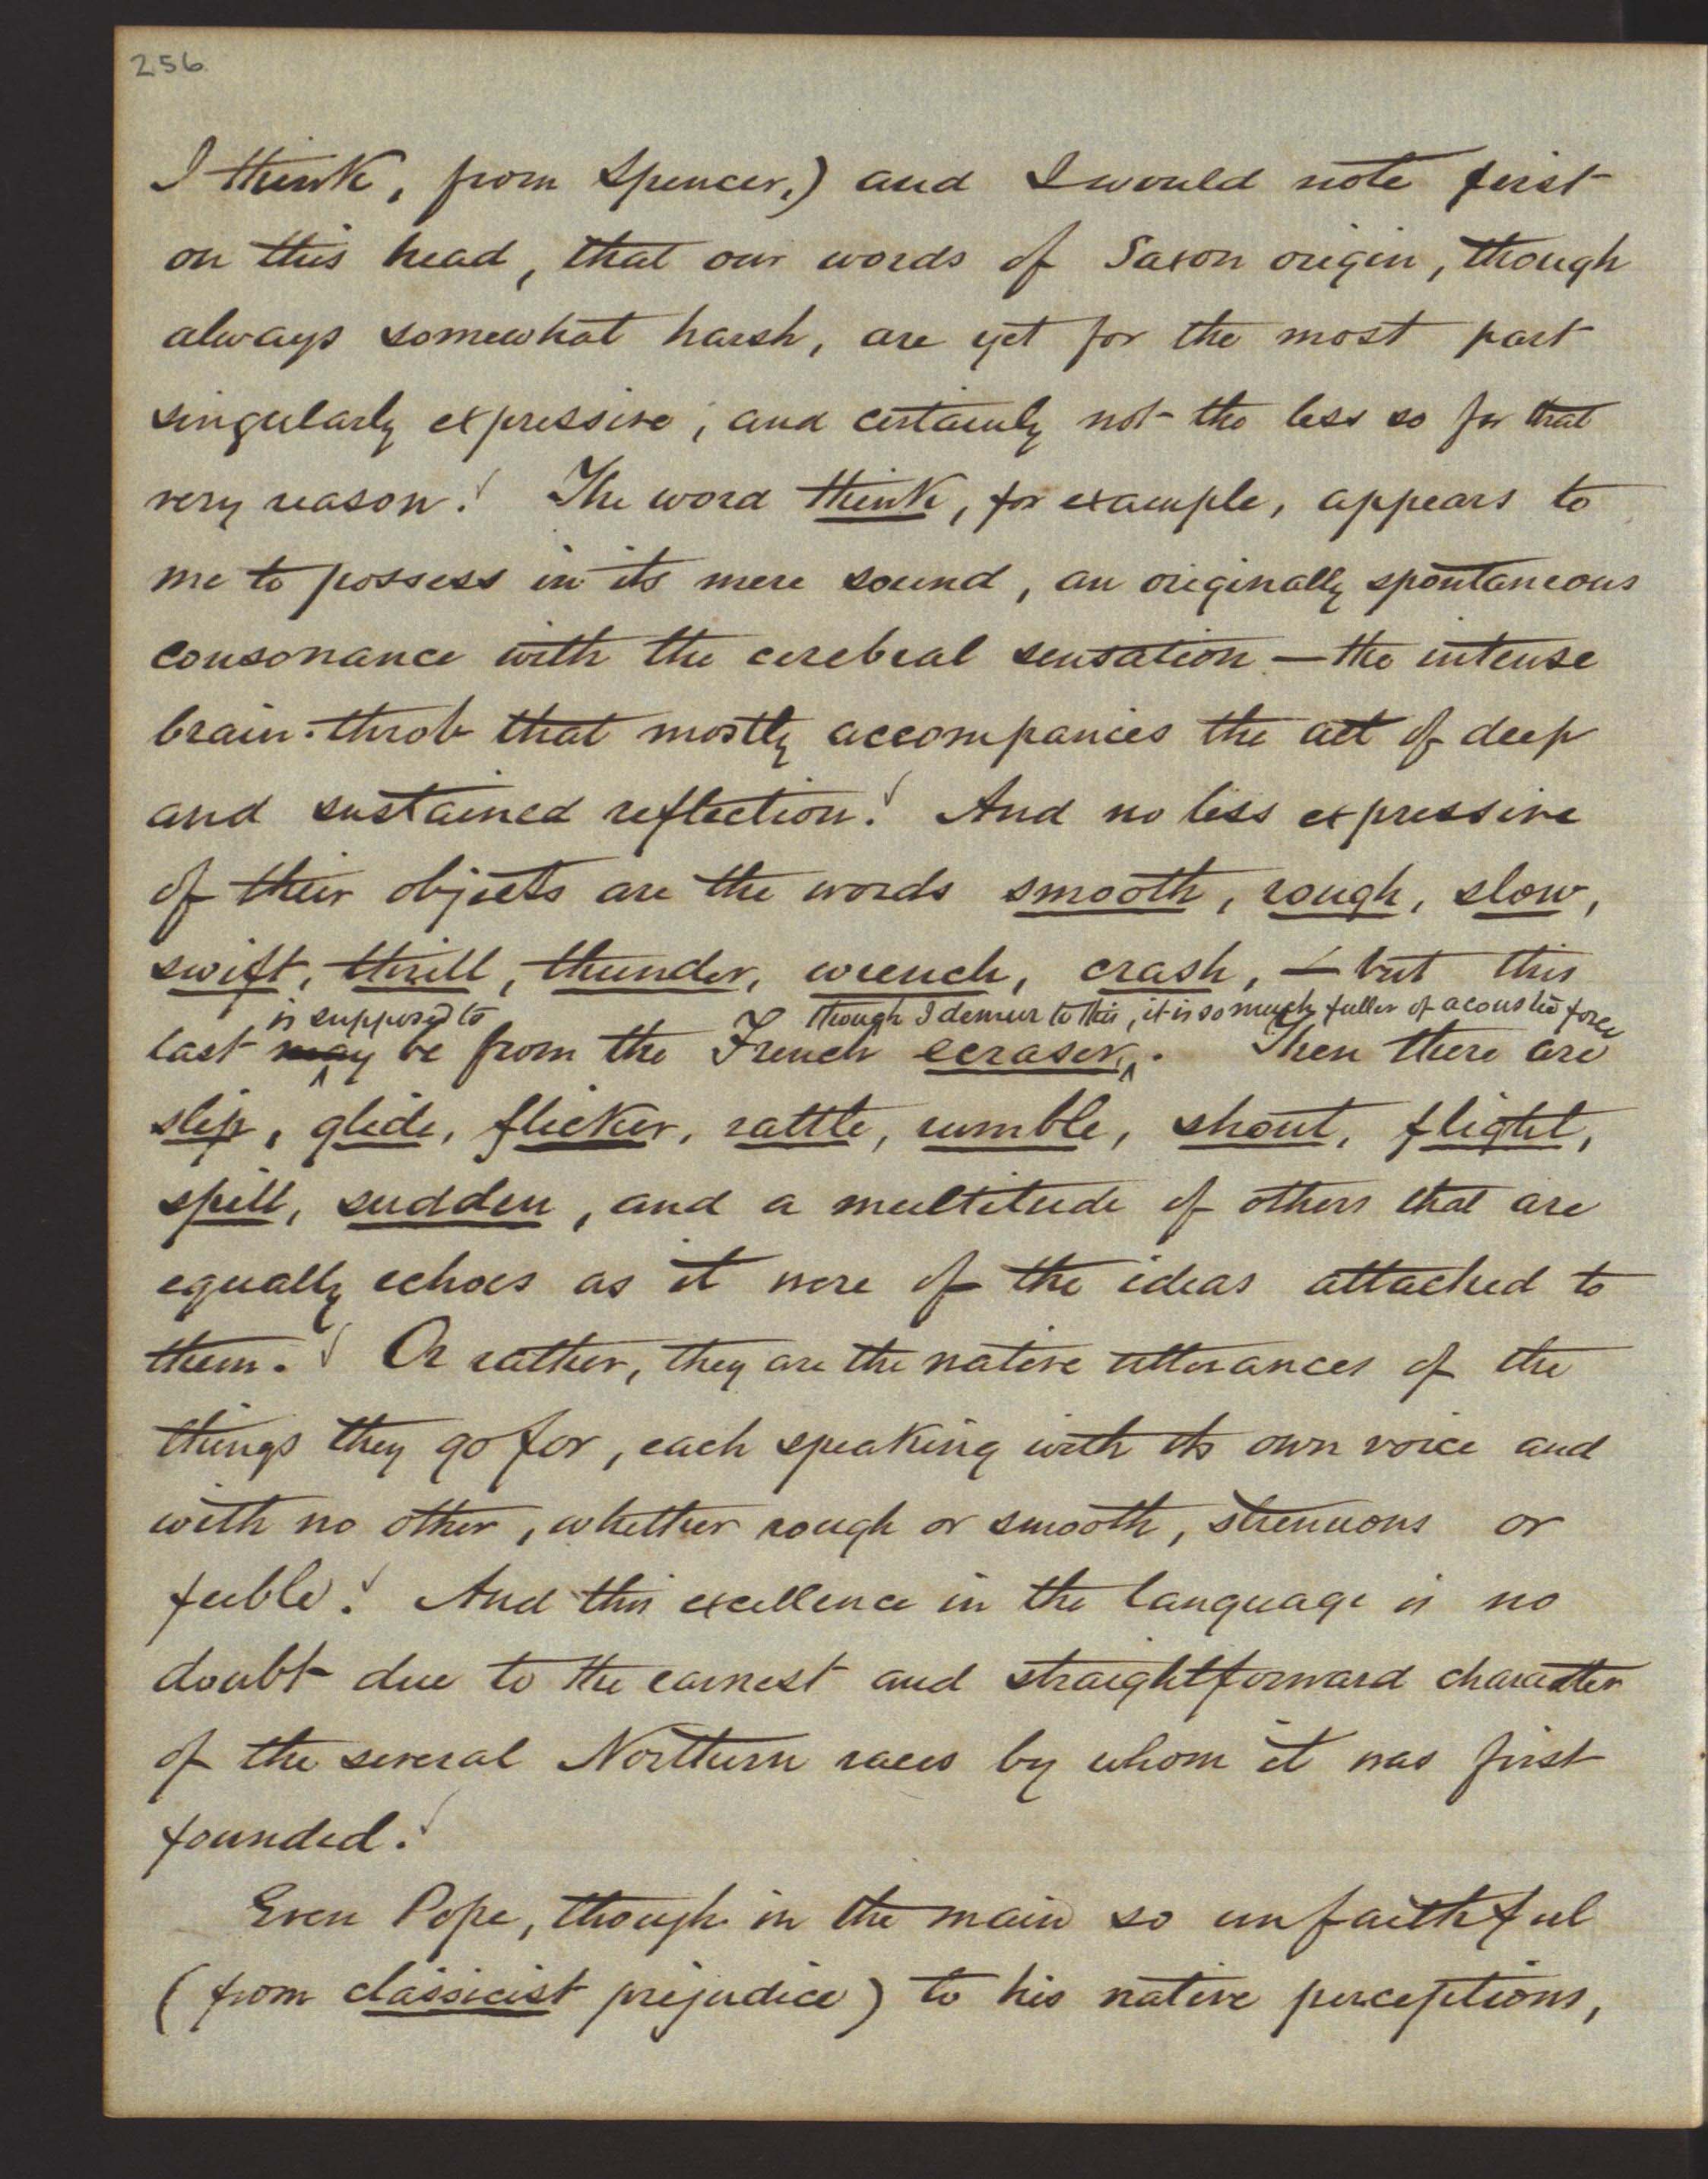 256
I think, from Spencer,) and I would note first
on this head, that our words of Saxon origin, though
always somewhat harsh, are yet for the most part
singularly expressive; and certainly not the less so for that
very reason. The word think, for example, appears to
me to possess in its mere sound, an originally spontaneous
consonance with the cerebral sensation — the intense
brain-throb that mostly accompanies the act of deep
and sustained reflection. And no less expressive
of their objects are the words smooth, rough, slow,
swift, thrill, thunder, wrench, crash, — but this
is supposed to though I demur to this, it is so much fuller of acoustic force
last may be from the French ecraser. Then there are
slip, glide, flicker, rattle, rumble, shout, flight,
spill, sudden, and a multitude of others that are
equally echoes as it were of the ideas attached to
them. Or rather, they are the native utterances of the
things they go for, each speaking with its own voice and
with no other, whether rough or smooth, strenuous or
feeble. And this excellence in the language is no
doubt due to the earnest and straightforward character
of the several Northern races by whom it was first
founded.
Even Pope, though in the main so unfaithful
(from classicist prejudice) to his native perceptions,